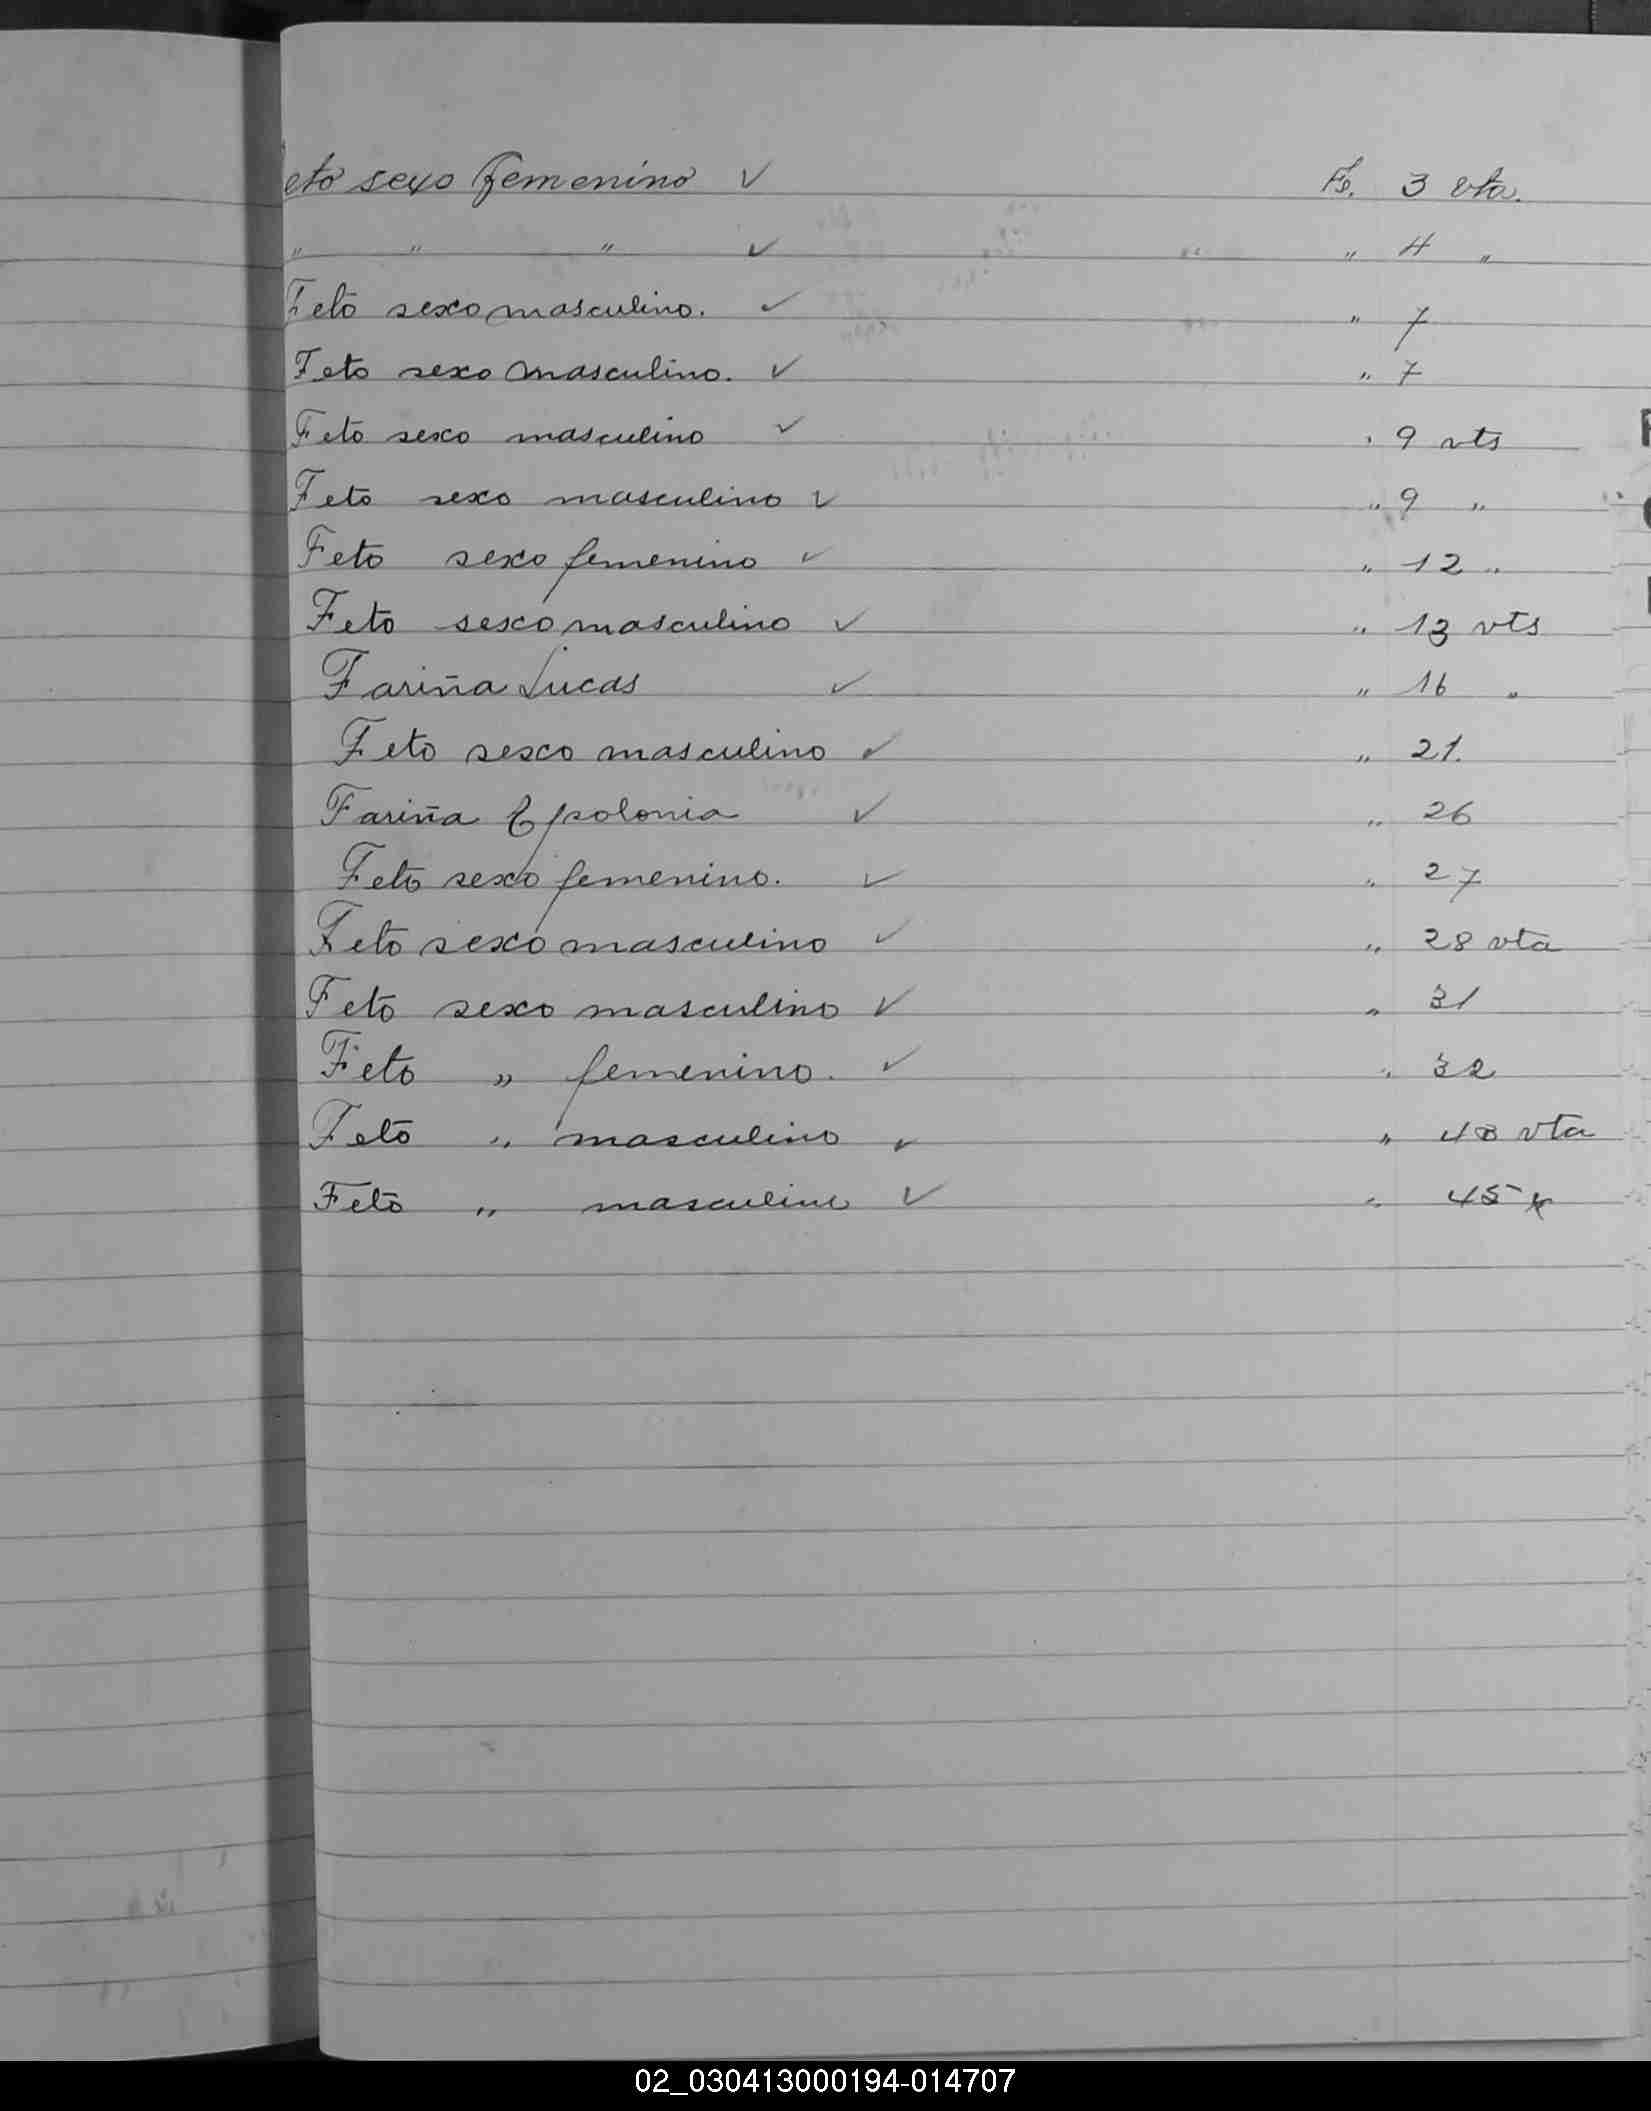 eto sexo femenino ✓ Fs. 3 vta.
" " " ✓ " 4 "
Feto sexo masculino. ✓ " 7
Feto sexo masculino. ✓ " 7
Feto sexo masculino ✓ " 9 vts
Feto sexo masculino ✓ " 9 "
Feto sexo femenino ✓ " 12 "
Feto sexo masculino ✓ " 13 vts
Fariña Lucas ✓ " 16 "
Feto sexo masculino ✓ " 21.
Fariña Epolonia ✓ " 26
Feto sexo femenino. ✓ " 27
Feto sexo masculino ✓ " 28 vta
Feto sexo masculino ✓ " 31
Feto " femenino. ✓ " 32
Feto " masculino ✓ " vta
Feto " masculino ✓ " 45
02_030413000194-014707